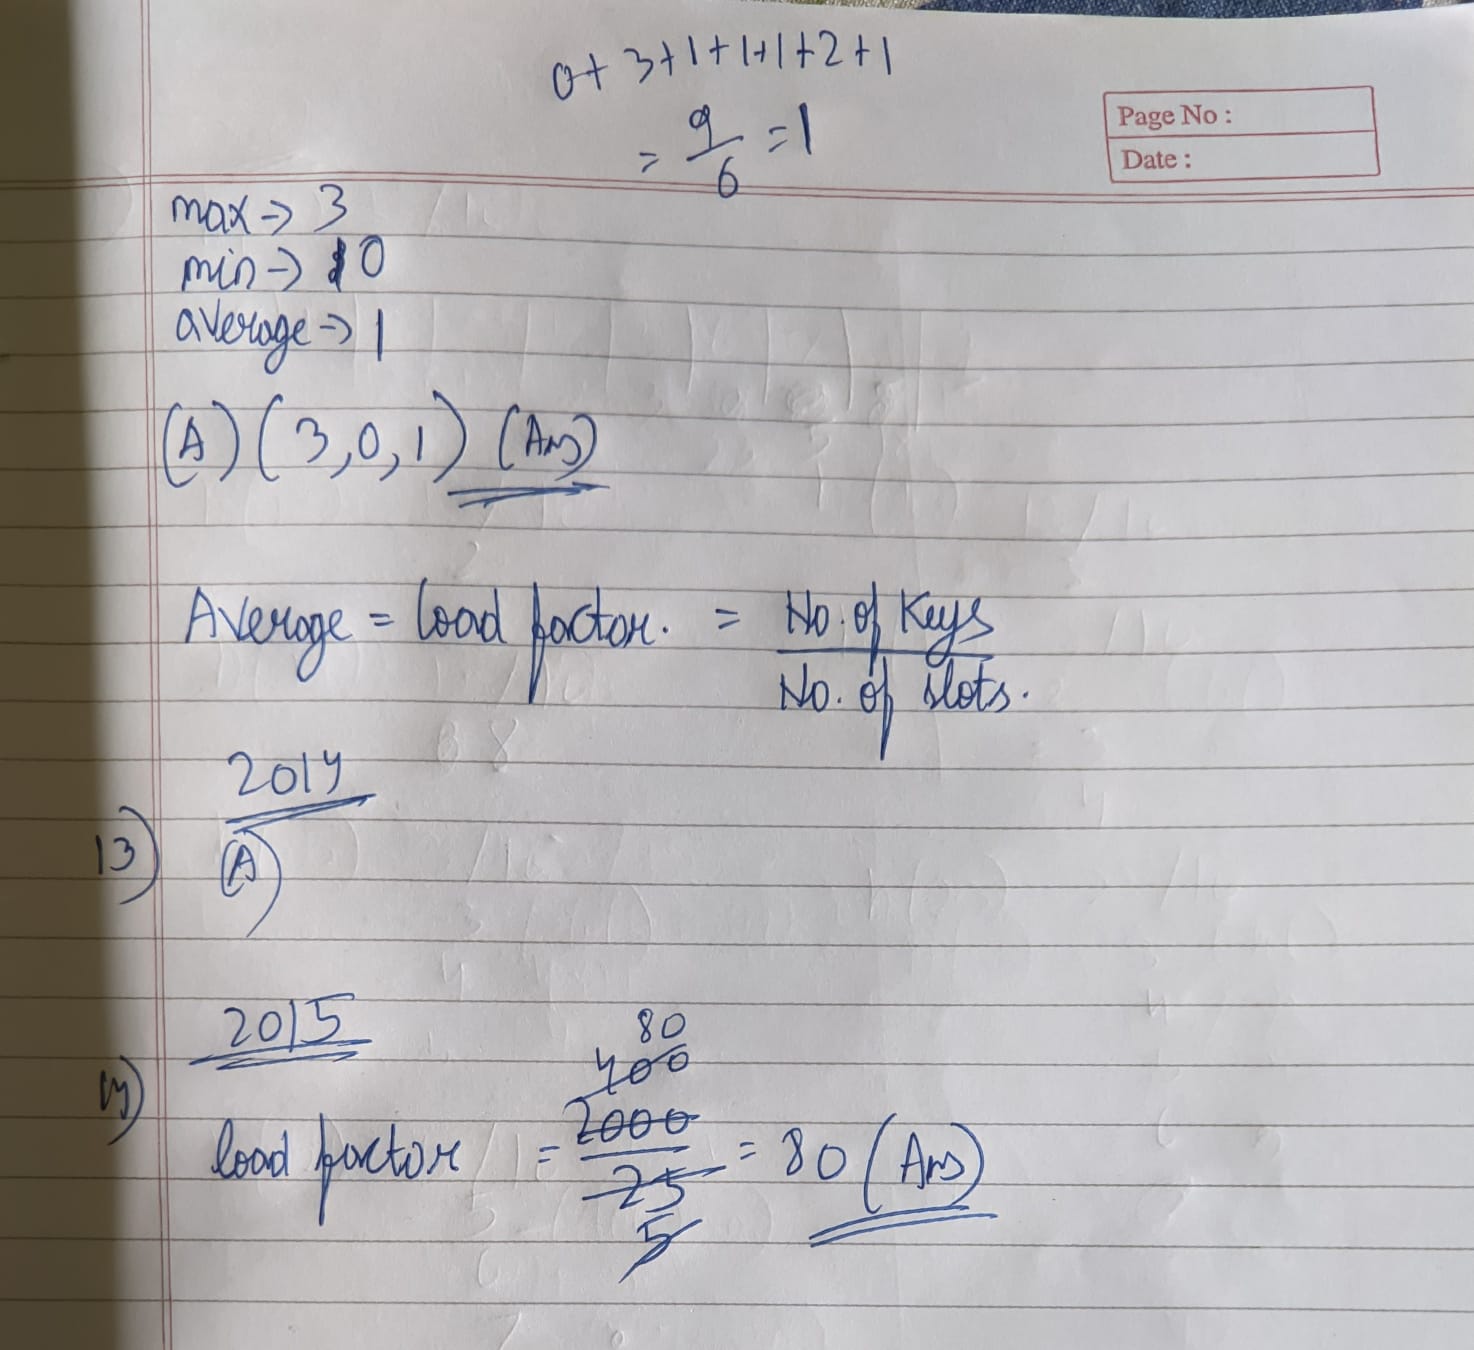 0+ 3+1+1+1+2+1
= 9/6 = 1
Page No :
Date :
max -> 3
min -> 0
average -> 1
(A) (3,0,1) (Ans)
Average = load factor. = No. of Keys / No. of slots.
2014
13) (A)
2015
80
400
14) load factor = 2000/25 = 80 (Ans)
5